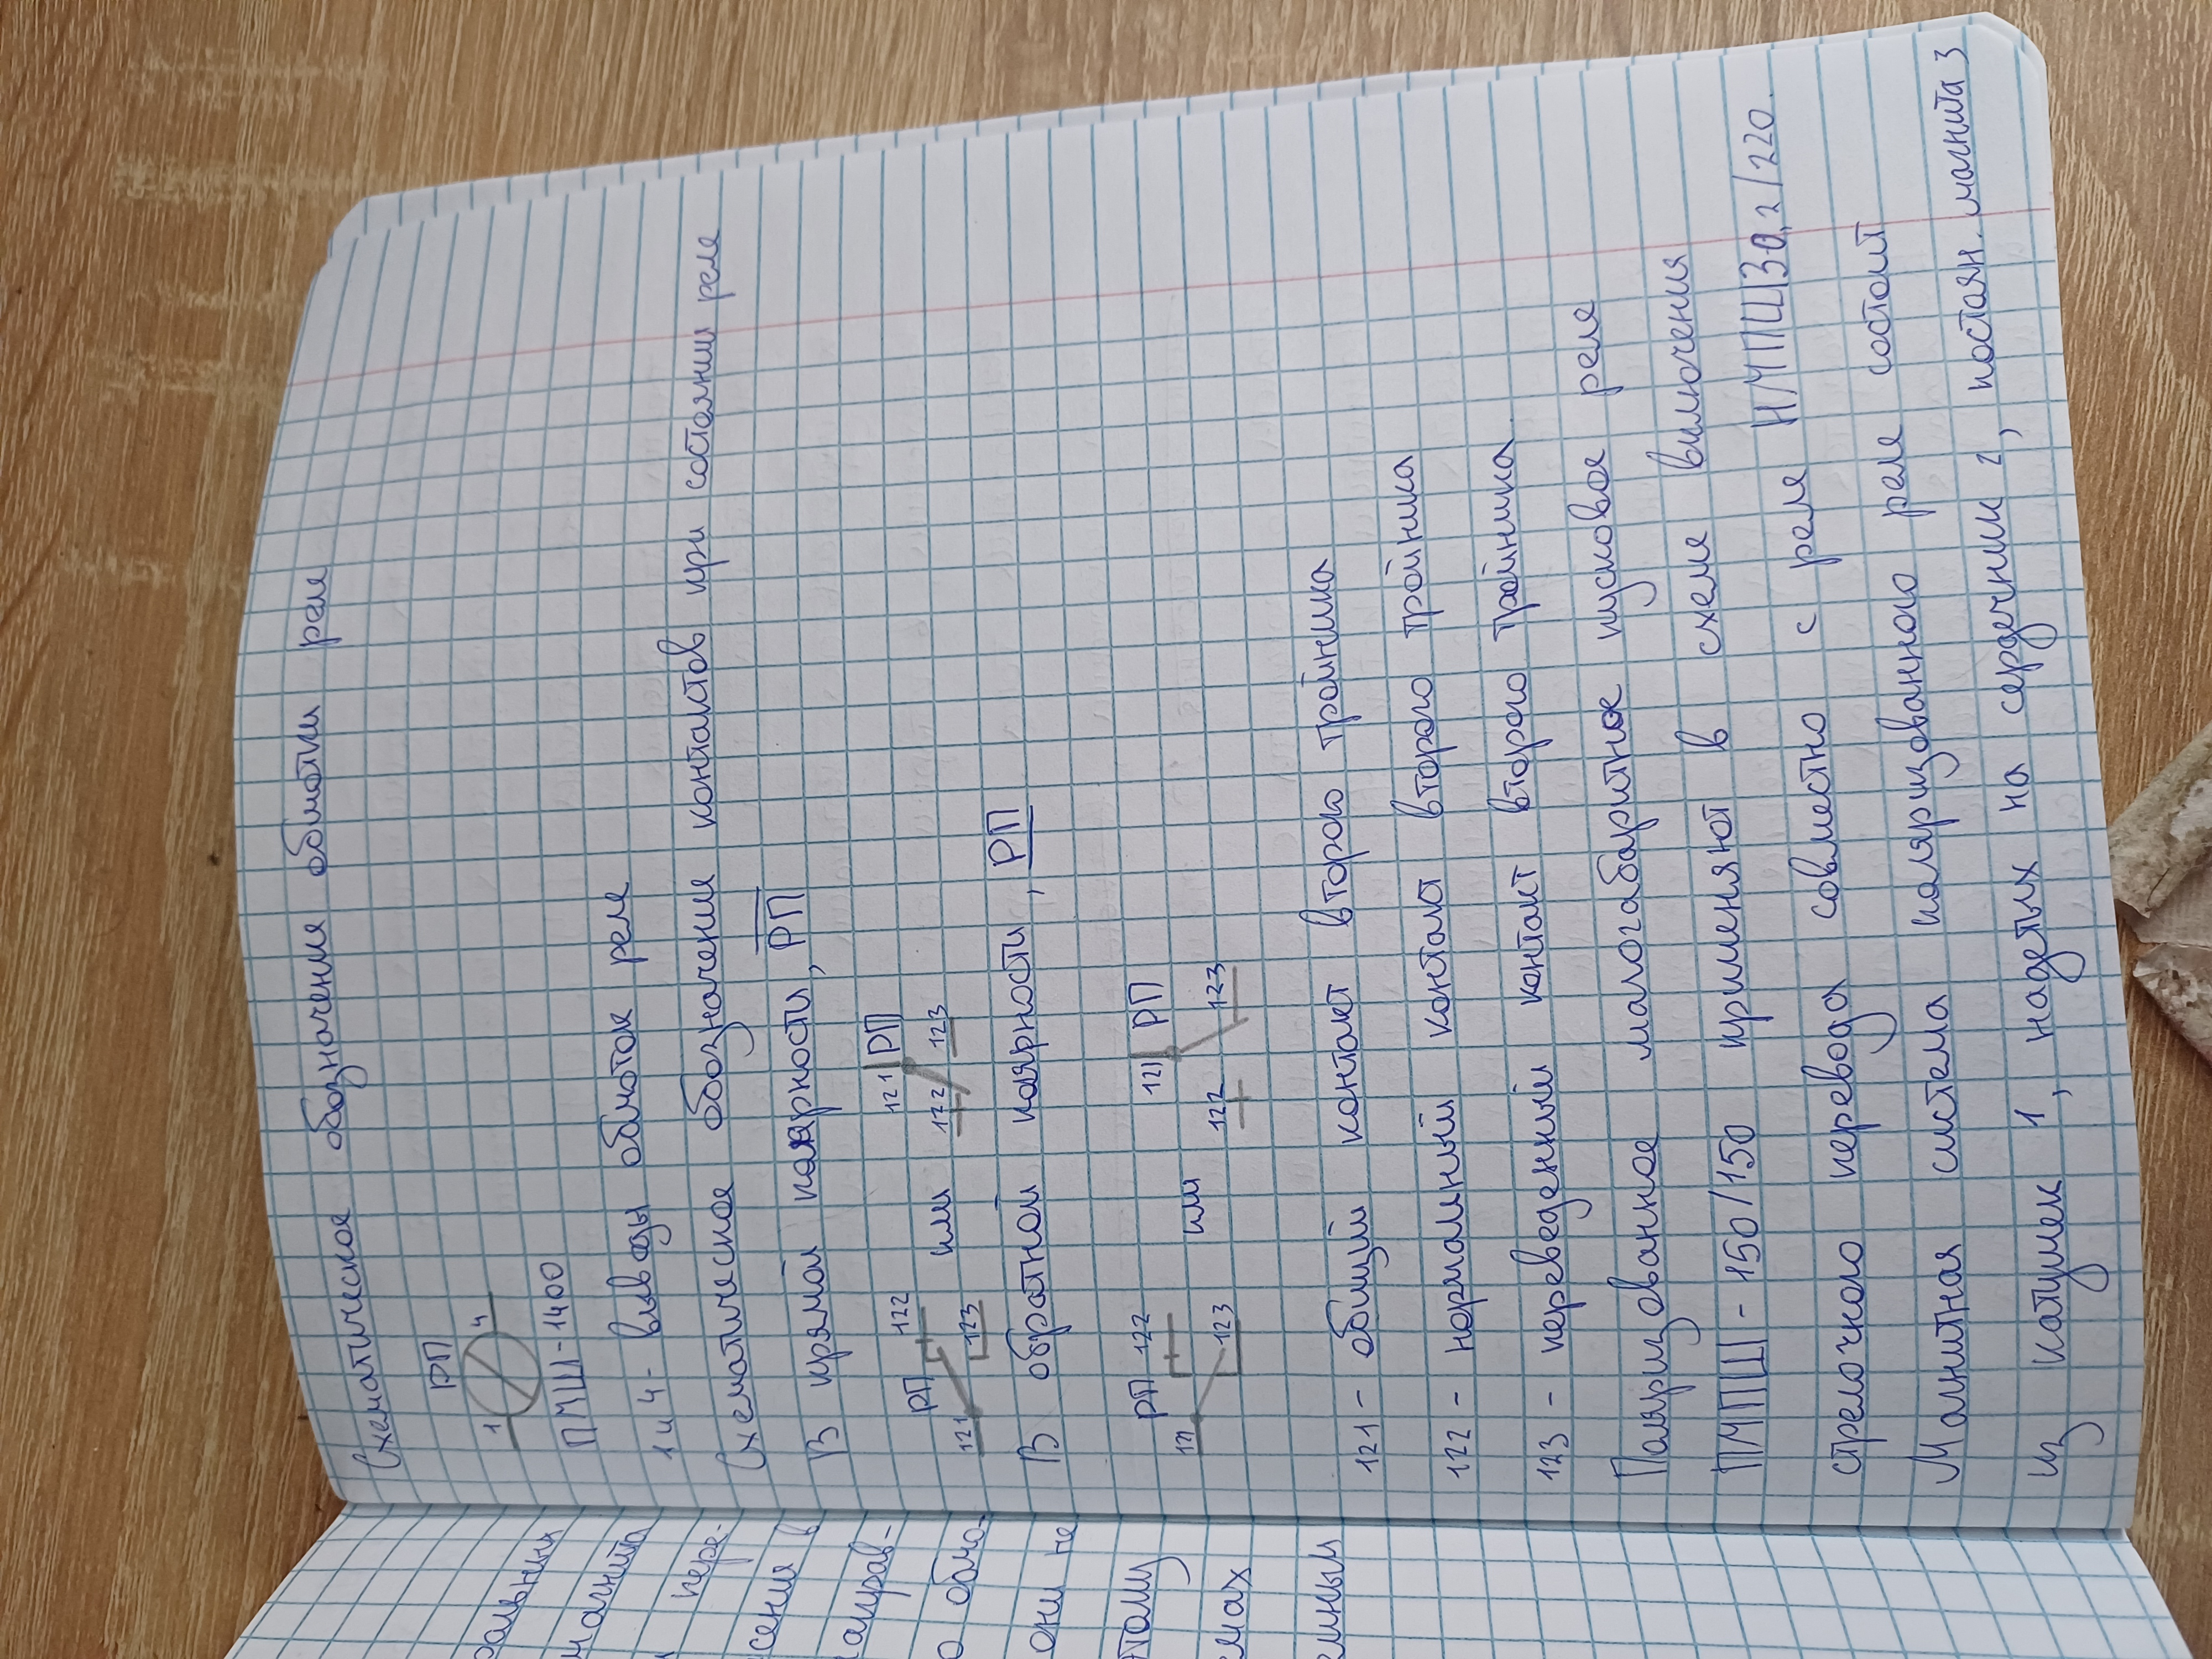 Схематическое обозначение обмотки реле
РП
1 4
ПМШ-1400
1 и 4 - выводы обмоток реле
Схематическое обозначение контактов при состоянии реле
В прямой полярности, РП
РП 122 121 РП
121 123 или 122 123
В обратной полярности, РП
РП 122 121 РП
121 123 или 122 123
121 - общий контакт второго тройника
122 - нормальный контакт второго тройника
123 - переведенный контакт второго тройника.
Поляризованное малогабаритное пусковое реле
ПМПШ - 150/150 применяют в схеме включения
стрелочного перевода совместно с реле НМПШ3-0,2/220.
Магнитная система поляризованного реле состоит
из катушек 1, надетых на сердечник 2, постоян. магнита 3
магнита
пере-
сения в
направ-
о обмо-
они не